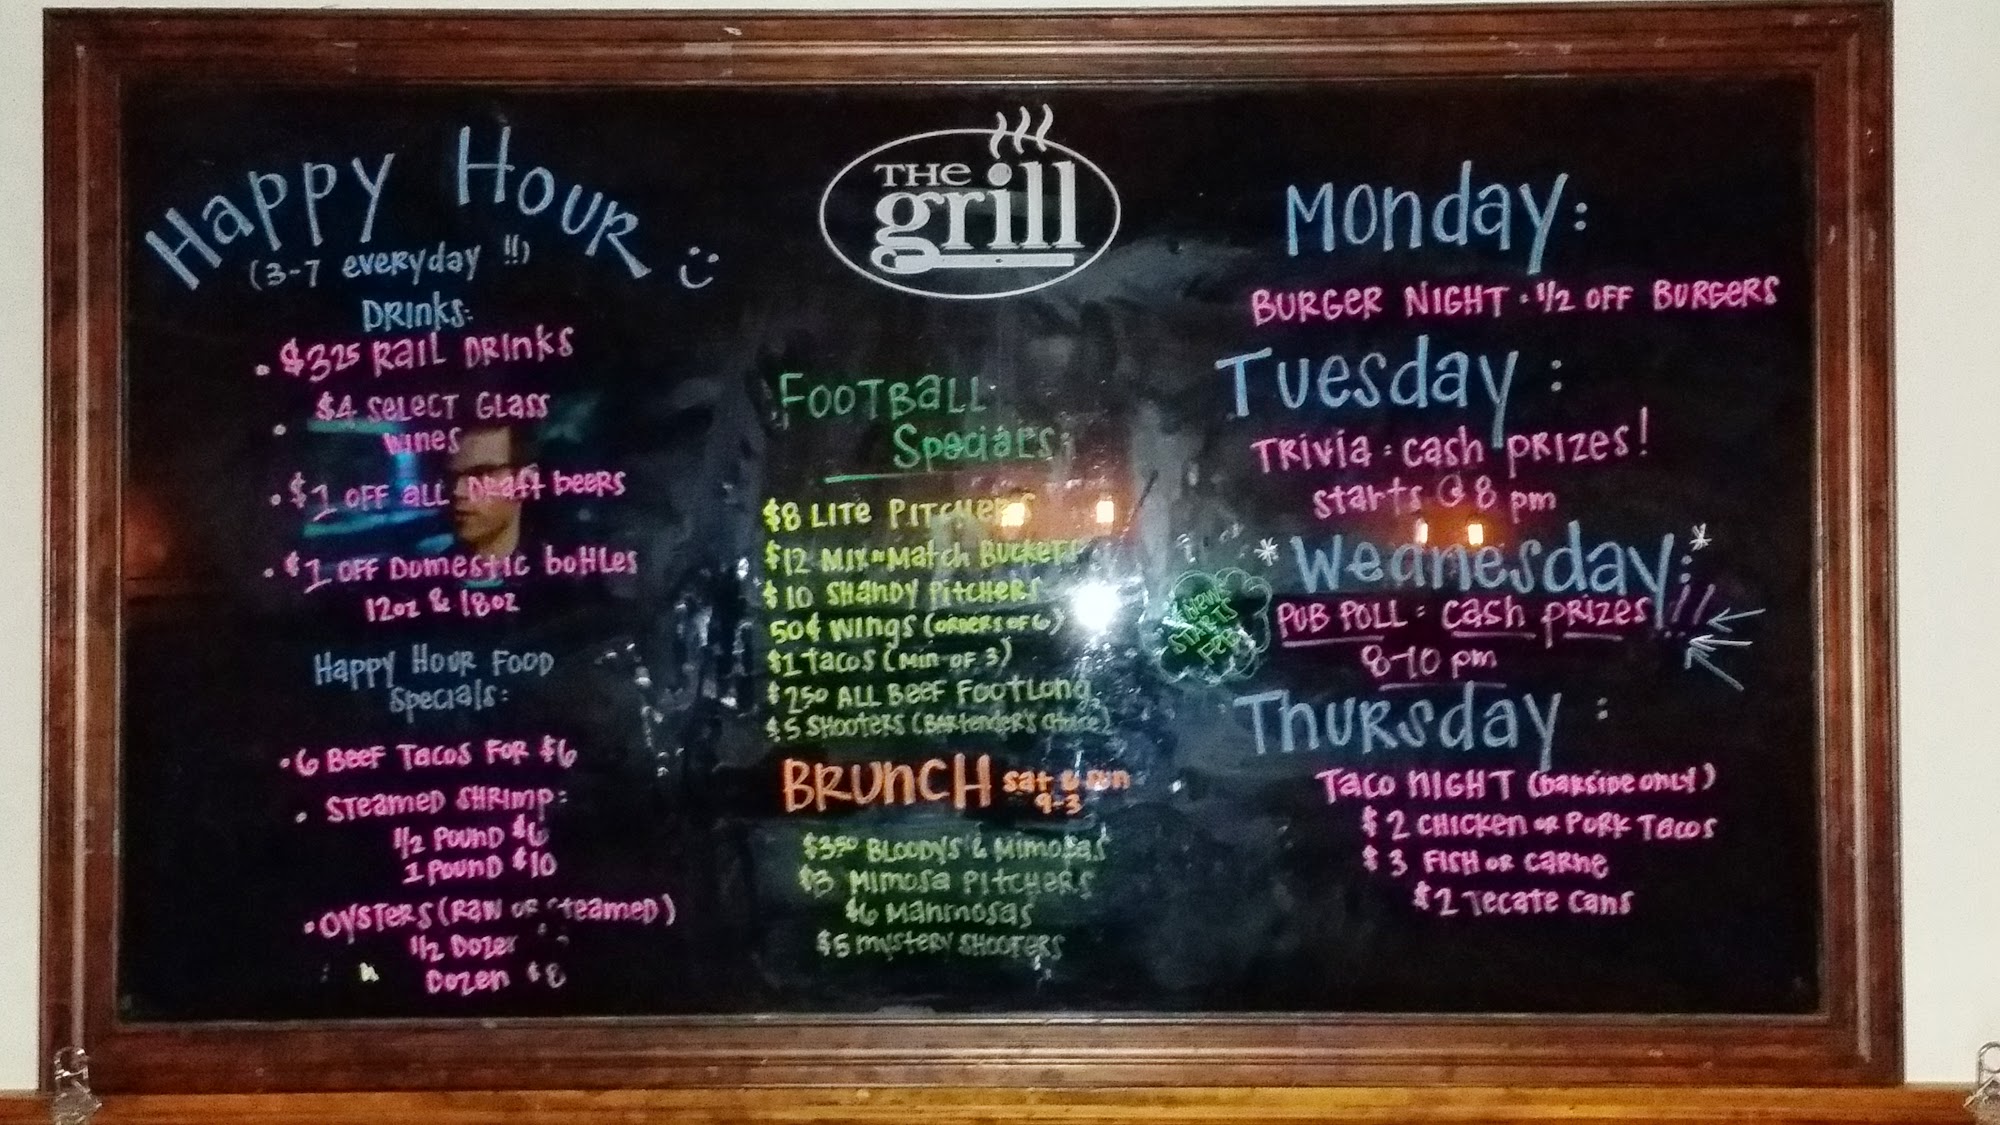 Happy Hour :)
(3-7 everyday !!)
Drinks:
• $325 Rail Drinks
• $4 Select Glass
Wines
• $1 OFF all Draft beers
• $1 OFF Domestic bottles
12oz & 18oz
Happy Hour Food
Specials:
• 6 Beef Tacos For $6
• Steamed Shrimp:
1/2 Pound $6
1 Pound $10
• Oysters (Raw or Steamed)
1/2 Dozen
Dozen $8
THe grill
Football
Specials:
$8 Lite Pitchers
$12 Mix-n-Match Buckets
$10 Shandy Pitchers
50¢ Wings (orders of 6)
$1 Tacos (Min of 3)
$250 All Beef Footlong
$5 Shooters (Bartender's Choice)
BRUNCH Sat & Sun
9-3
$350 Bloodys & Mimosas
Mimosa Pitchers
$6 Manmosas
$5 Mystery Shooters
Monday:
BURGER NIGHT • 1/2 OFF BURGERS
Tuesday:
Trivia: cash prizes!
starts @ 8 pm
*Wednesday:*
New!
STARTS
FEB
PUB POLL: cash prizes!!
8-10 pm
Thursday:
Taco NIGHT (barside only)
$2 CHICKEN or PORK Tacos
$3 FISH or Carne
$2 Tecate cans